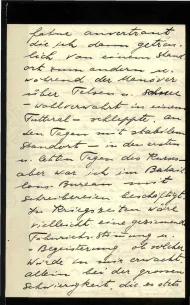 fahne anvertraut
die ich dann getreu-
lich von einem Stand
ort zum andern u.
während der Manöver
über Felsen u.
- wohlverwahrt in einem
Futteral - schleppte, an
den Tagen mit stabilem
Standort - in den ersten
u. letzten Tagen des Kurses
aber war ich im Batail
lons-Bureau mit
Schreibereien beschäftigt.
In Kriegszeiten wäre
vielleicht eine gewisse
Fahnrichstimmung u.
- Begeisterung ob solcher
Würde in mir erwacht,
allein bei der grossen
Schwierigkeit, die es stets